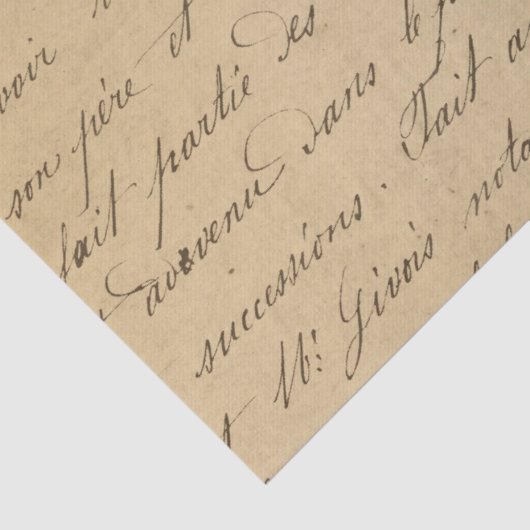 voir
son père et
fait partie des
avxvenu dans le
successions. Fait
Mr. Givois nota